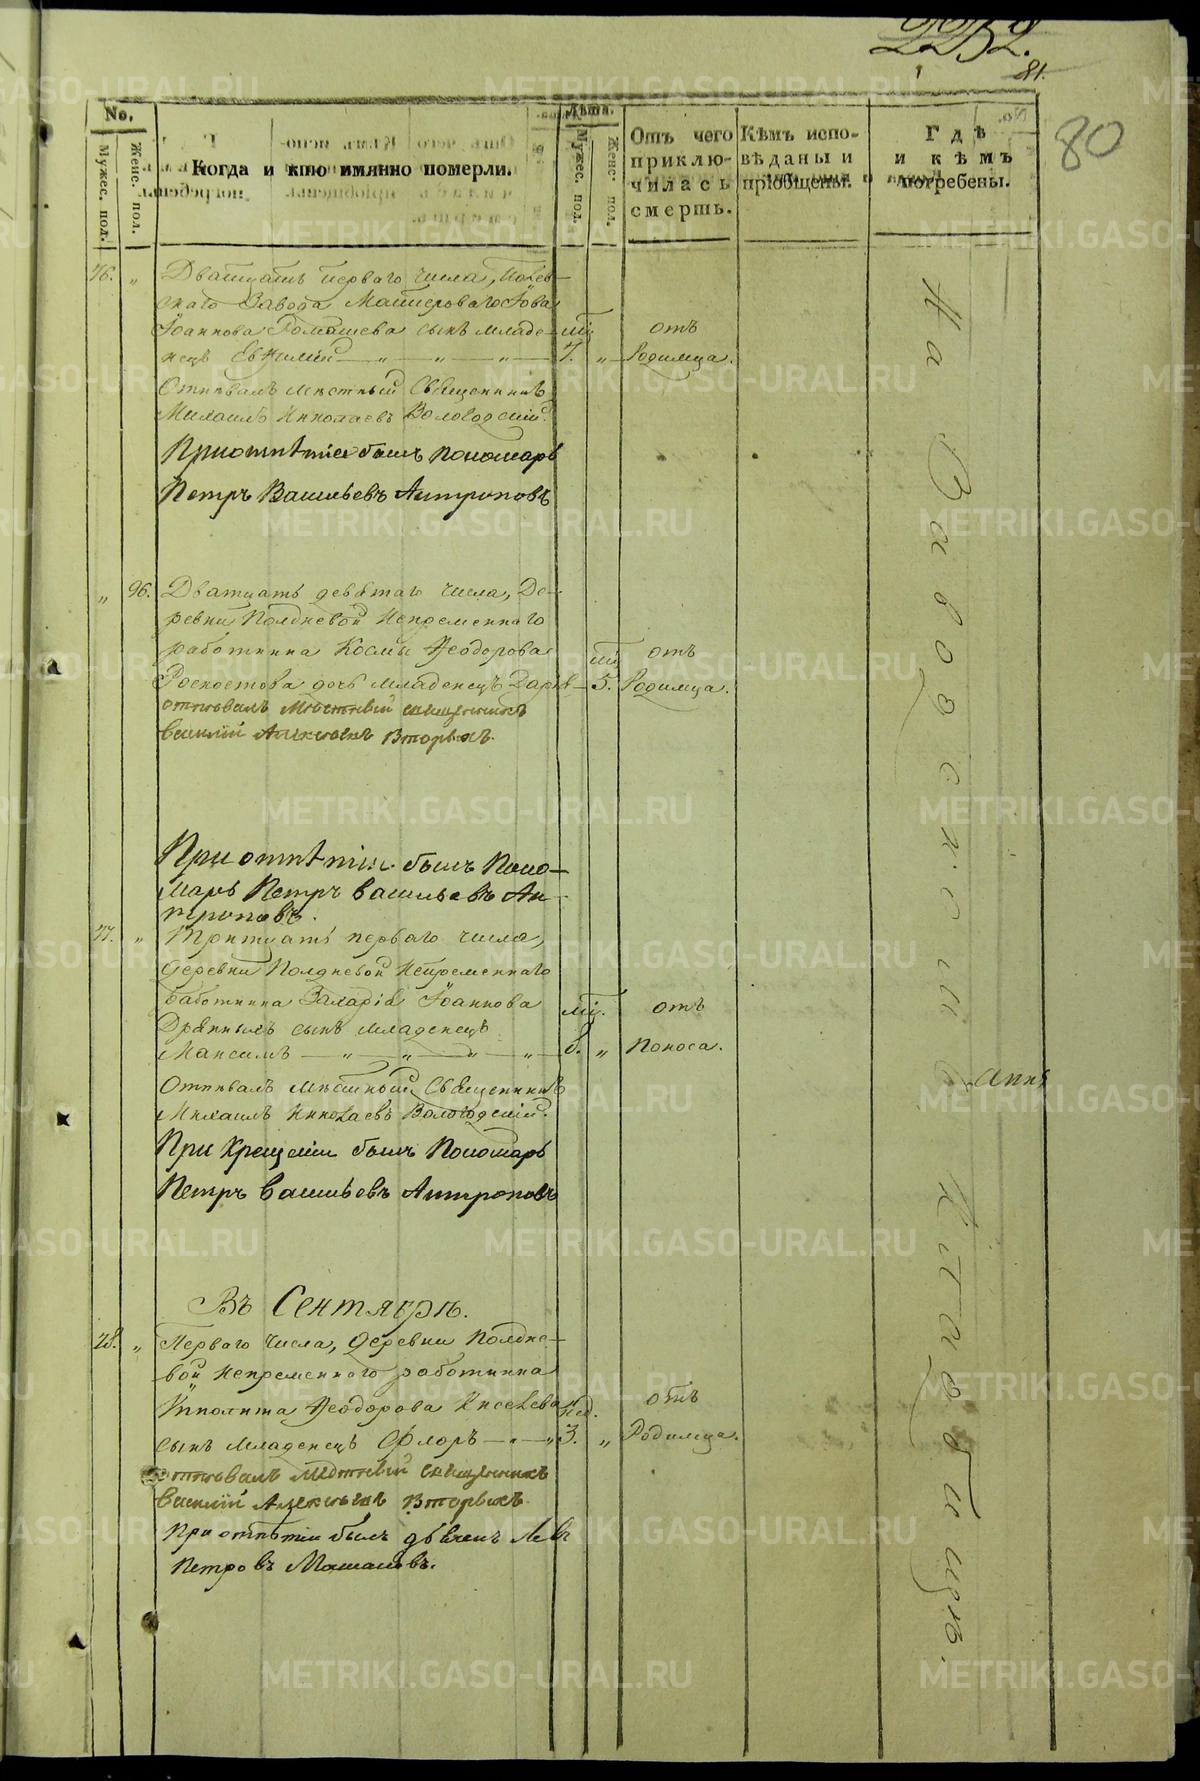 2252.
81.
80
No.
Мужес. пол.
Женс. пол.
Когда и кто имянно померли.
Лѣта.
Мужес. пол.
Женс. пол.
Отъ чего
приклю-
чилась
смерть.
Кѣмъ испо-
вѣданы и
пріобщены.
Гдѣ
и кѣмъ
погребены.
76. „ Дватцать перваго числа,
скаго Завода Мастероваго Іова
Іоаннова сынъ младе- мц. отъ
нецъ Евѳимій — „ — „ — „ — 7. „ Родимца.
Отпѣвалъ мѣстный Священникъ
Михаилъ Николаевъ Вологодскій.
При отпѣтіи былъ пономарь
Петръ Васильевъ Антроповъ
„ 96. Дватцать девятаго числа, Де-
ревни Полдневой Непременнаго
работника Космы Ѳеодорова мц. отъ
дочь младенецъ Дарія — 5. Родимца.
отпѣвалъ Мѣстный священникъ
Василій Алексѣевъ Вторыхъ.
При отпѣтіи былъ Поно-
марь Петръ Васильевъ Ан-
троповъ.
77. „ Тритцать перваго числа,
деревни Полдневой Непременнаго
работника Захарія Іоаннова мц. отъ
сынъ младенецъ
Максимъ — „ — „ — „ — „ — 8. „ Поноса.
Отпѣвалъ мѣстный Священникъ
Михаилъ Николаевъ Вологодскій.
При Крещеніи былъ Пономарь
Петръ Васильевъ Антроповъ
Въ Сентябрѣ.
78. „ Перваго числа, деревни Полдне-
вой Непременного работника
Ипполита Ѳеодорова Киселева нед. отъ
сынъ младенецъ Флоръ — „ — „ 3. „ Родимца.
отпѣвалъ Мѣстный священникъ
Василій Алексѣевъ Вторыхъ.
При отпѣтіи былъ дьячекъ Левъ
Петровъ
На Заводскомъ Кладбищѣ.